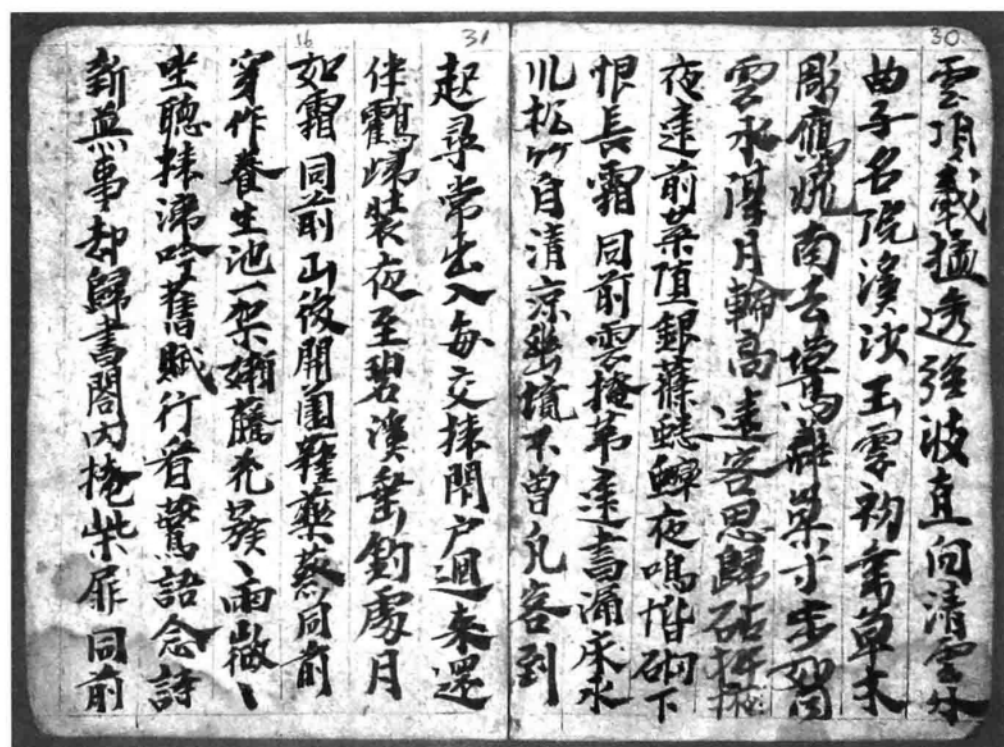 30
雲頂戴猛透強波直向清雲外
曲子名浣溪沙玉露初垂草木
彫鴈南去鷰離巢寸步如同
雲水隔月輪高遠客思歸砧杵
夜遠前葉墮銀蟋蟀夜鳴堦砌下
恨長霜同前雲掩茅書滿床冰
川松竹自清凉幽境不曾凡客到
31
起尋常出入每交猿閉户迴来還
伴鸖歸裝夜至碧溪垂釣處月
16
如霜同前山後開園種藥葵同前
穿作養生池一架嬾藤花簇〻雨微〻
坐聽猿啼吟舊賦行看鷰語念詩
新無事却歸書閣内掩柴扉同前